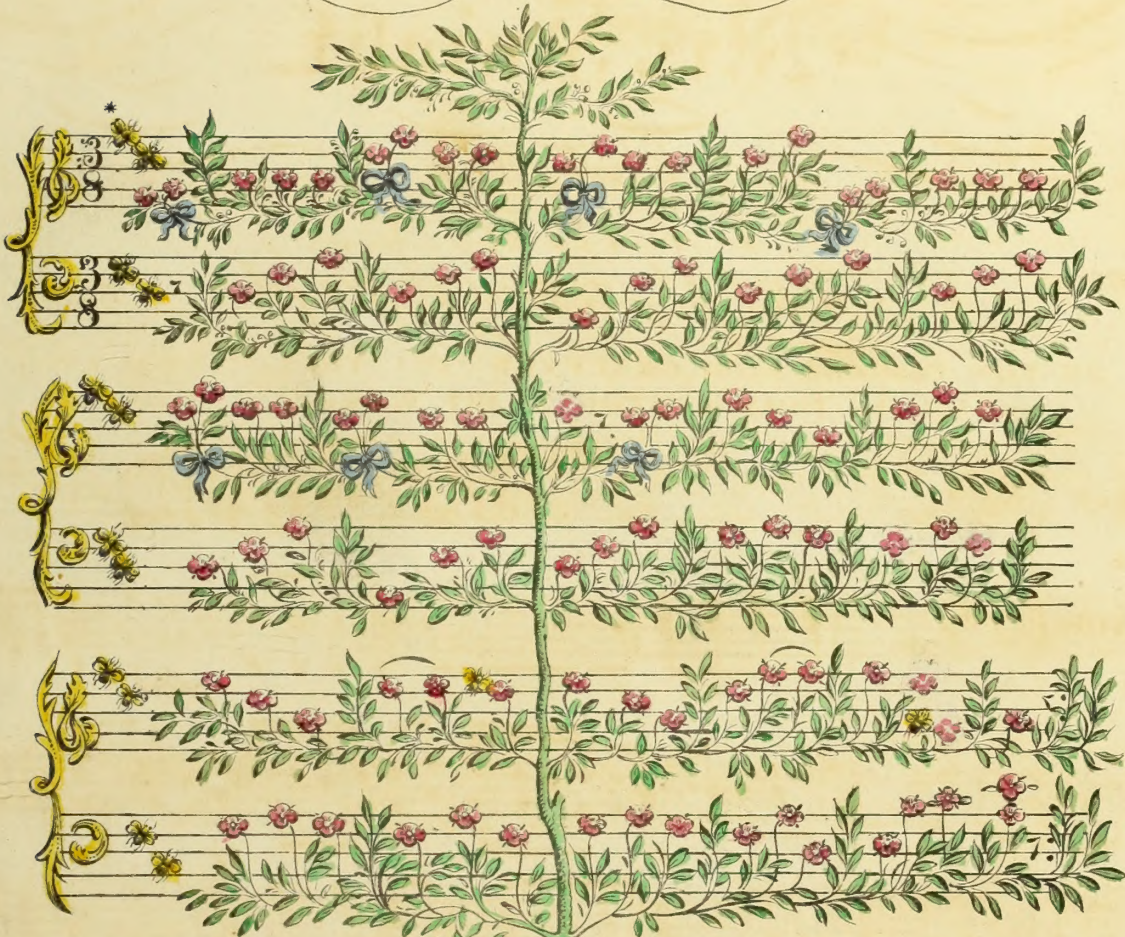 *
3
8
3
8